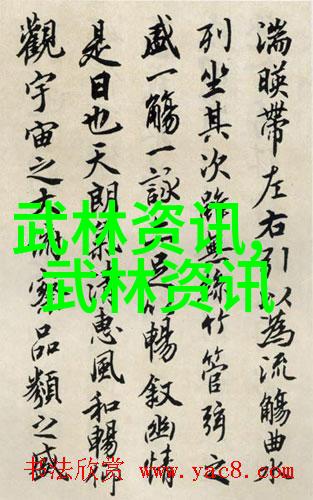 湍暎帶左右引以為流觴曲水
列坐其次雖無絲竹管弦之
盛一觴一詠亦足以暢叙幽情
是日也天朗氣清惠風和暢仰
觀宇宙之大俯察品類之盛
武林资讯,
武林资讯
书法欣赏 www.yac8.com